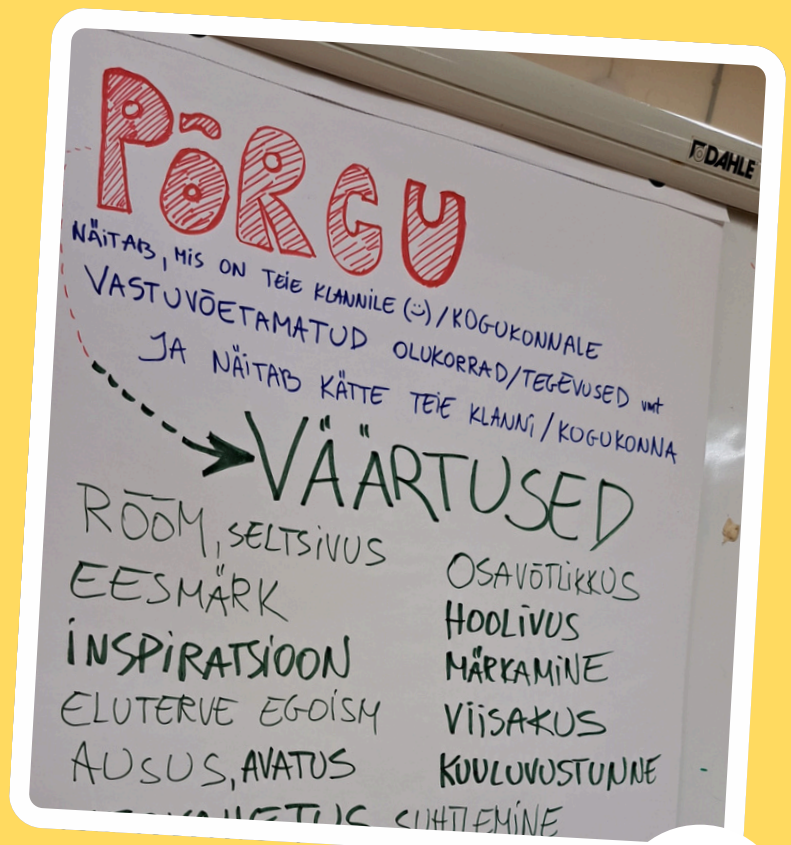 DAHLE
PÕRGU
NÄITAB, MIS ON TEIE KLANNILE (:)/KOGUKONNALE
VASTUVÕETAMATUD OLUKORRAD/TEGEVUSED vmt
JA NÄITAB KÄTTE TEIE KLANNI/KOGUKONNA
VÄÄRTUSED
RÕÕM, SELTSIVUS
EESMÄRK
INSPIRATSIOON
ELUTERVE EGOISM
AUSUS, AVATUS
OSAVÕTLIKKUS
HOOLIVUS
MÄRKAMINE
VIISAKUS
KUULUVUSTUNNE
SUHTLEMINE